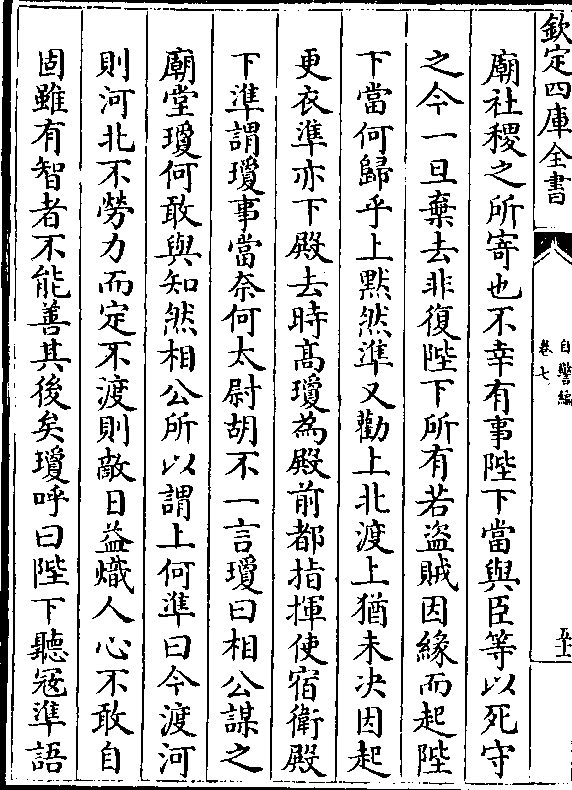 欽定四庫全書
自警編
卷七
五十二
廟社稷之所寄也不幸有事陛下當與臣等以死守
之今一旦棄去非復陛下所有若盜賊因緣而起陛
下當何歸乎上黙然準又勸上北渡上猶未决因起
更衣準亦下殿去時髙瓊為殿前都指揮使宿衛殿
下準謂瓊事當奈何太尉胡不一言瓊曰相公謀之
廟堂瓊何敢與知然相公所以謂上何準曰今渡河
則河北不勞力而定不渡則敵日益熾人心不敢自
固雖有智者不能善其後矣瓊呼曰陛下聽冦準語